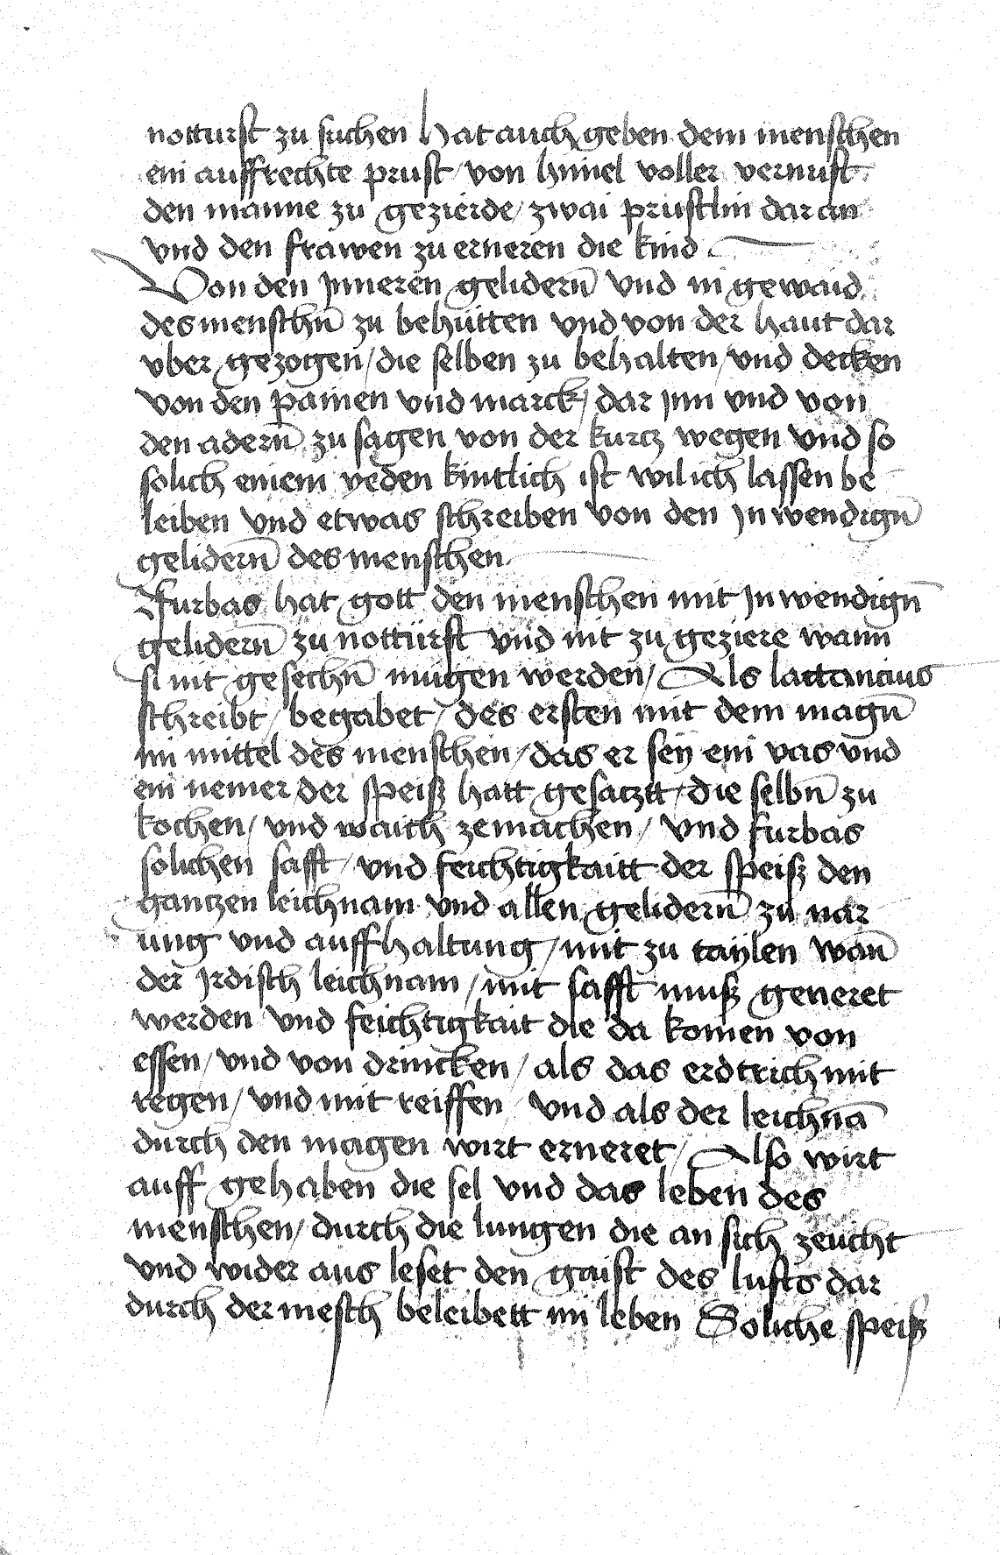 notturft zu suchen hat auch geben dem menschen
ein auffrechte prust / von himel voller vernuft
den manne zu gezierde / zwai prüstlin dar an
vnd den frawen zu erneren die kind
Von den Jnneren geliderñ vnd in gewaid
des menschñ zu behütten vnd von der haut dar
vber gezogen / die selben zu behalten / vnd decken
von den painen vnd marck / dar jnn vnd von
den aderñ zu sagen von der kurcz wegen vnd so
solich einem yeden kintlich ist wil ich lassen be
leiben vnd etwas schreiben von den Jn wendigñ
geliderñ des menschen
Furbas hat gott den menschen mit Jn wendigñ
geliderñ zu nottürft vnd nit zu geziere wann
si nit gesechñ mügen werden / Als lactancius
schreibt / begabet / des ersten mit dem magñ
im mittel des menschen / das er seÿ ein vas vnd
ein nemer der speiß hatt gesatztt / die selbñ zu
kochen / vnd waich zemachen / vnd furbas
solichen safft / vnd feichtigkaitt der speiß den
gantzen leichnam vnd allen geliderñ zu nar
ung vnd auffhaltung / mit zu taÿlen wañ
der Jrdisch leichnam / mit safft muß generet
werden vnd feichtigkait die da komen von
essen / vnd von drincken / als das erdtrich mit
regen / vnd mit reiffen / vnd als der leichnā
durch den magen wirt erneret / Also wirt
auff gehaben die sel vnd das leben des
menschen / durch die lungen die an sich zeucht
vnd wider aus leset den gaist des lufts dar
durch der mesch beleibett im leben Soliche speiß